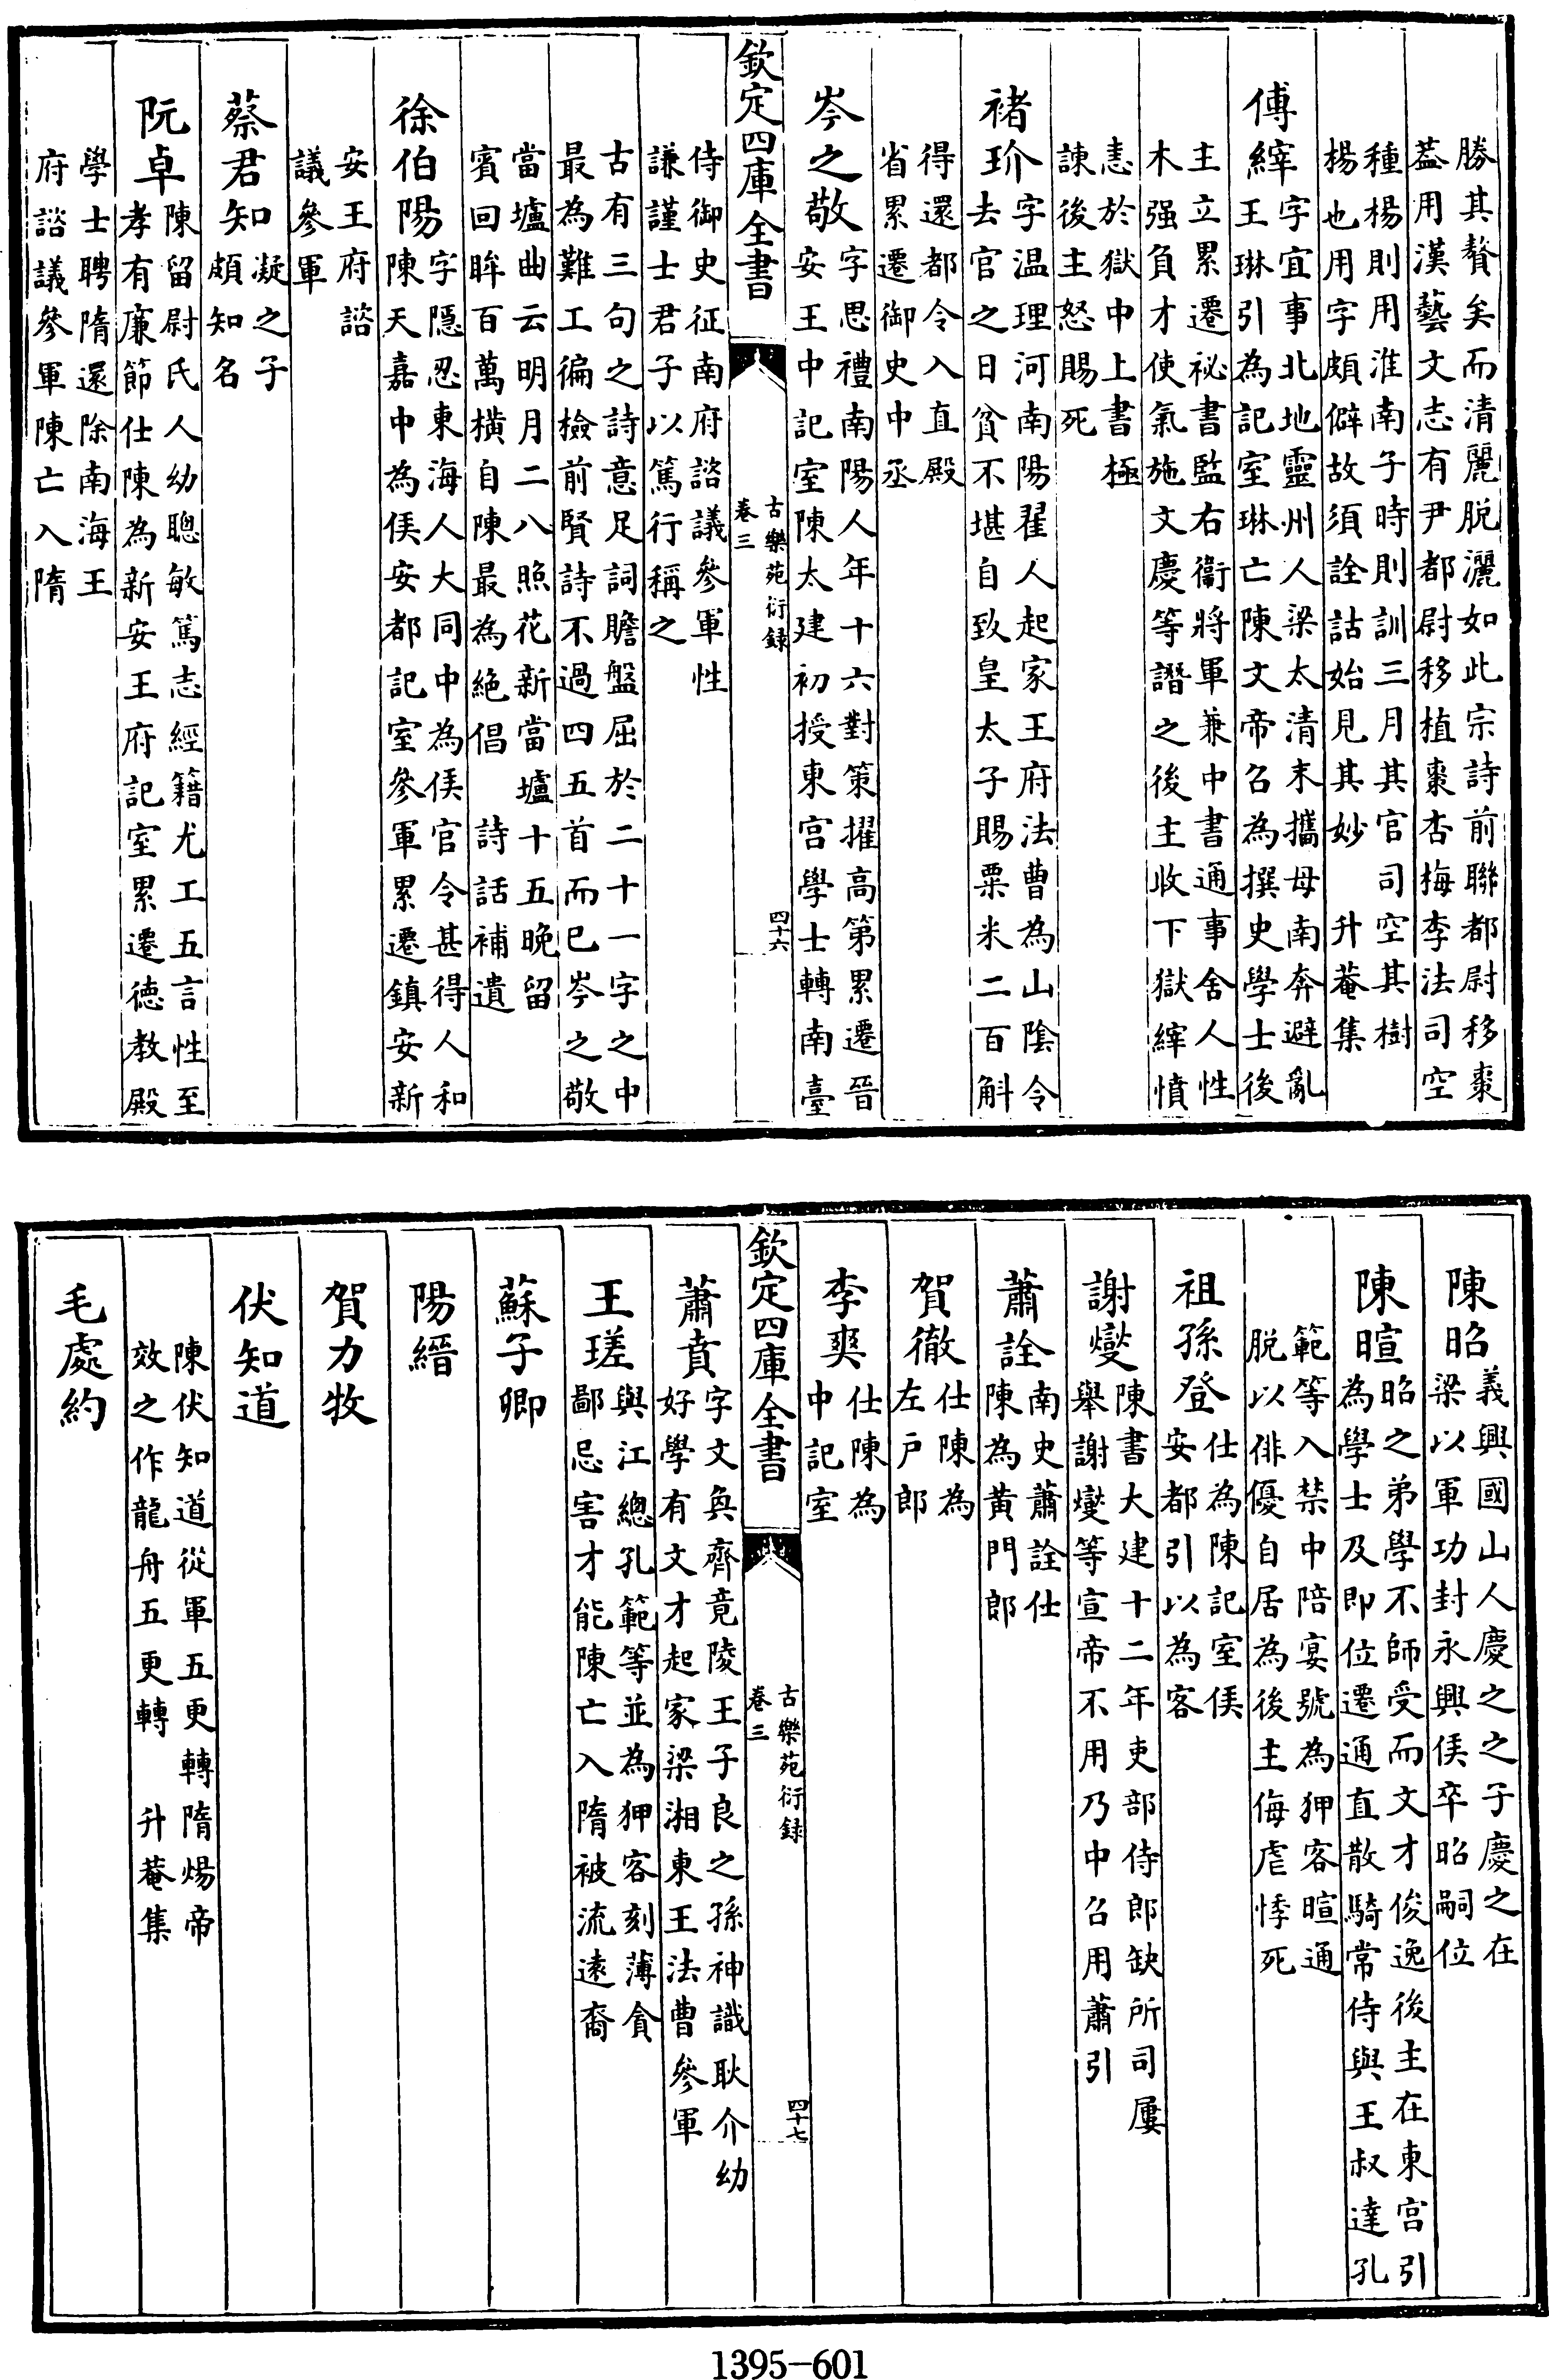 勝其贅矣而清麗脱灑如此宗詩前聯都尉移棗
葢用漢藝文志有尹都尉移植棗杏梅李法司空
種楊則用淮南子時則訓三月其官司空其樹
楊也用字頗僻故須詮詁始見其妙　升菴集
傅縡
字宜事北地靈州人梁太清末攜母南奔避亂
王琳引為記室琳亡陳文帝召為撰史學士後
主立累遷祕書監右衞將軍兼中書通事舍人性
木强負才使氣施文慶等譖之後主收下獄縡憤
恚於獄中上書極
諫後主怒賜死
褚玠
字温理河南陽翟人起家王府法曹為山隂令
去官之日貧不堪自致皇太子賜粟米二百斛
得還都令入直殿
省累遷御史中丞
岑之敬
字思禮南陽人年十六對策擢高第累遷晉
安王中記室陳太建初授東宫學士轉南臺
欽定四庫全書
古樂苑衍録
卷三
四十六
侍御史征南府諮議參軍性
謙謹士君子以篤行稱之
古有三句之詩意足詞贍盤屈於二十一字之中
最為難工徧檢前賢詩不過四五首而已岑之敬
當壚曲云明月二八照花新當壚十五晚留
賓回眸百萬横自陳最為絶倡　詩話補遺
徐伯陽
字隱忍東海人大同中為侯官令甚得人和
陳天嘉中為侯安都記室參軍累遷鎮安新
安王府諮
議參軍
蔡君知
凝之子
頗知名
阮卓
陳留尉氏人幼聰敏篤志經籍尤工五言性至
孝有廉節仕陳為新安王府記室累遷徳教殿
學士聘隋還除南海王
府諮議參軍陳亡入隋
陳昭
義興國山人慶之之子慶之在
梁以軍功封永興侯卒昭嗣位
陳暄
昭之弟學不師受而文才俊逸後主在東宫引
為學士及即位遷通直散騎常侍與王叔達孔
範等入禁中陪宴號為狎客暄通
脱以俳優自居為後主侮虐悸死
祖孫登
仕為陳記室侯
安都引以為客
謝燮
陳書大建十二年吏部侍郎缺所司屢
舉謝燮等宣帝不用乃中召用蕭引
蕭詮
南史蕭詮仕
陳為黄門郎
賀徹
仕陳為
左户郎
李爽
仕陳為
中記室
欽定四庫全書
古樂苑衍録
卷三
四十七
蕭賁
字文奐齊竟陵王子良之孫神識耿介幼
好學有文才起家梁湘東王法曹參軍
王瑳
與江總孔範等並為狎客刻薄貪
鄙忌害才能陳亡入隋被流遠裔
蘇子卿
陽縉
賀力牧
伏知道
陳伏知道從軍五更轉隋煬帝
效之作龍舟五更轉　升菴集
毛處約
1395-601